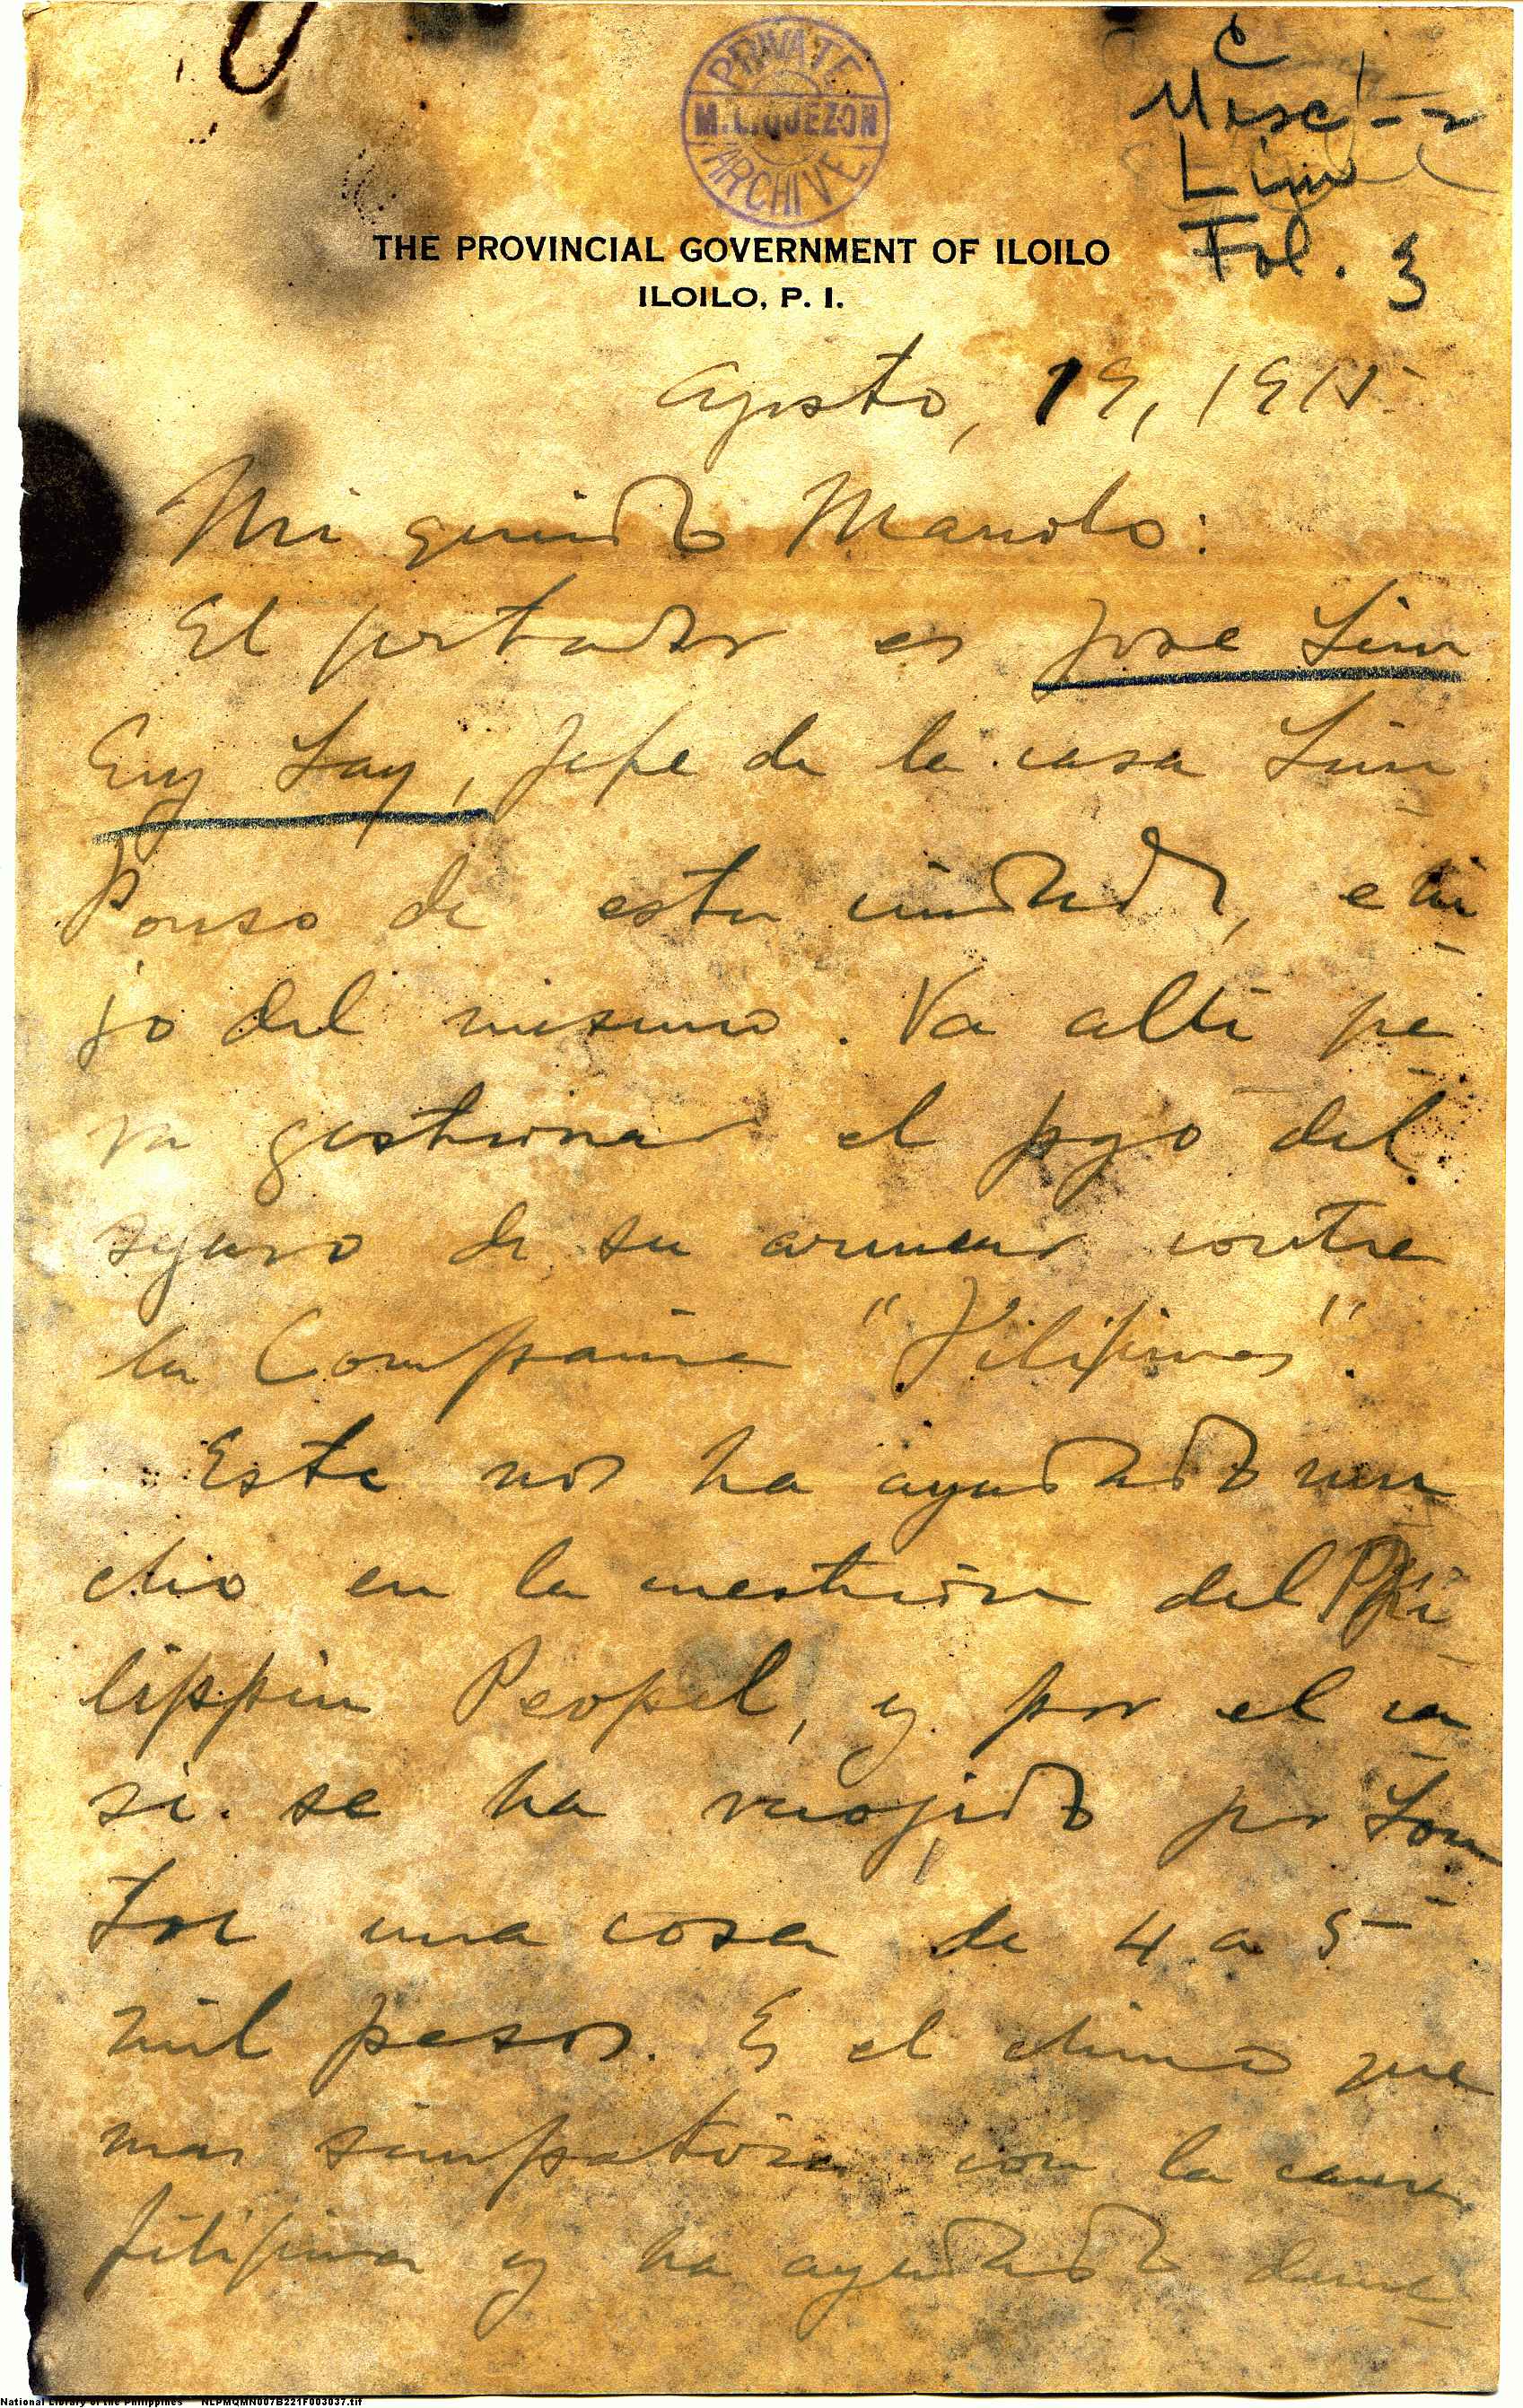 PRIVATE
M.L. QUEZON
ARCHIVE
C
Misc'--
Lim
Fol. 3
THE PROVINCIAL GOVERNMENT OF ILOILO
ILOILO, P. I.
Agosto, 19, 1915
Mi querido Manolo:
El portador es Jose Lim
Eng Lay, Jefe de la casa Lim
Ponso de esta ciudad, e hi-
jo del mismo. Va alli pa-
ra gestionar el pago del
seguro de su contra
la Compañia "Filipinas".
Este nos ha ayudado mu
cho en la cuestion del Phi-
lippin Peopel, y por el ca-
si se ha recojido por
una cosa de 4 a 5
mil pesos. Es el chino que
mas simpatiza con la causa
filipina y ha ayudado
National Library of the Philippines NLPMQMN007B221F003037.tif